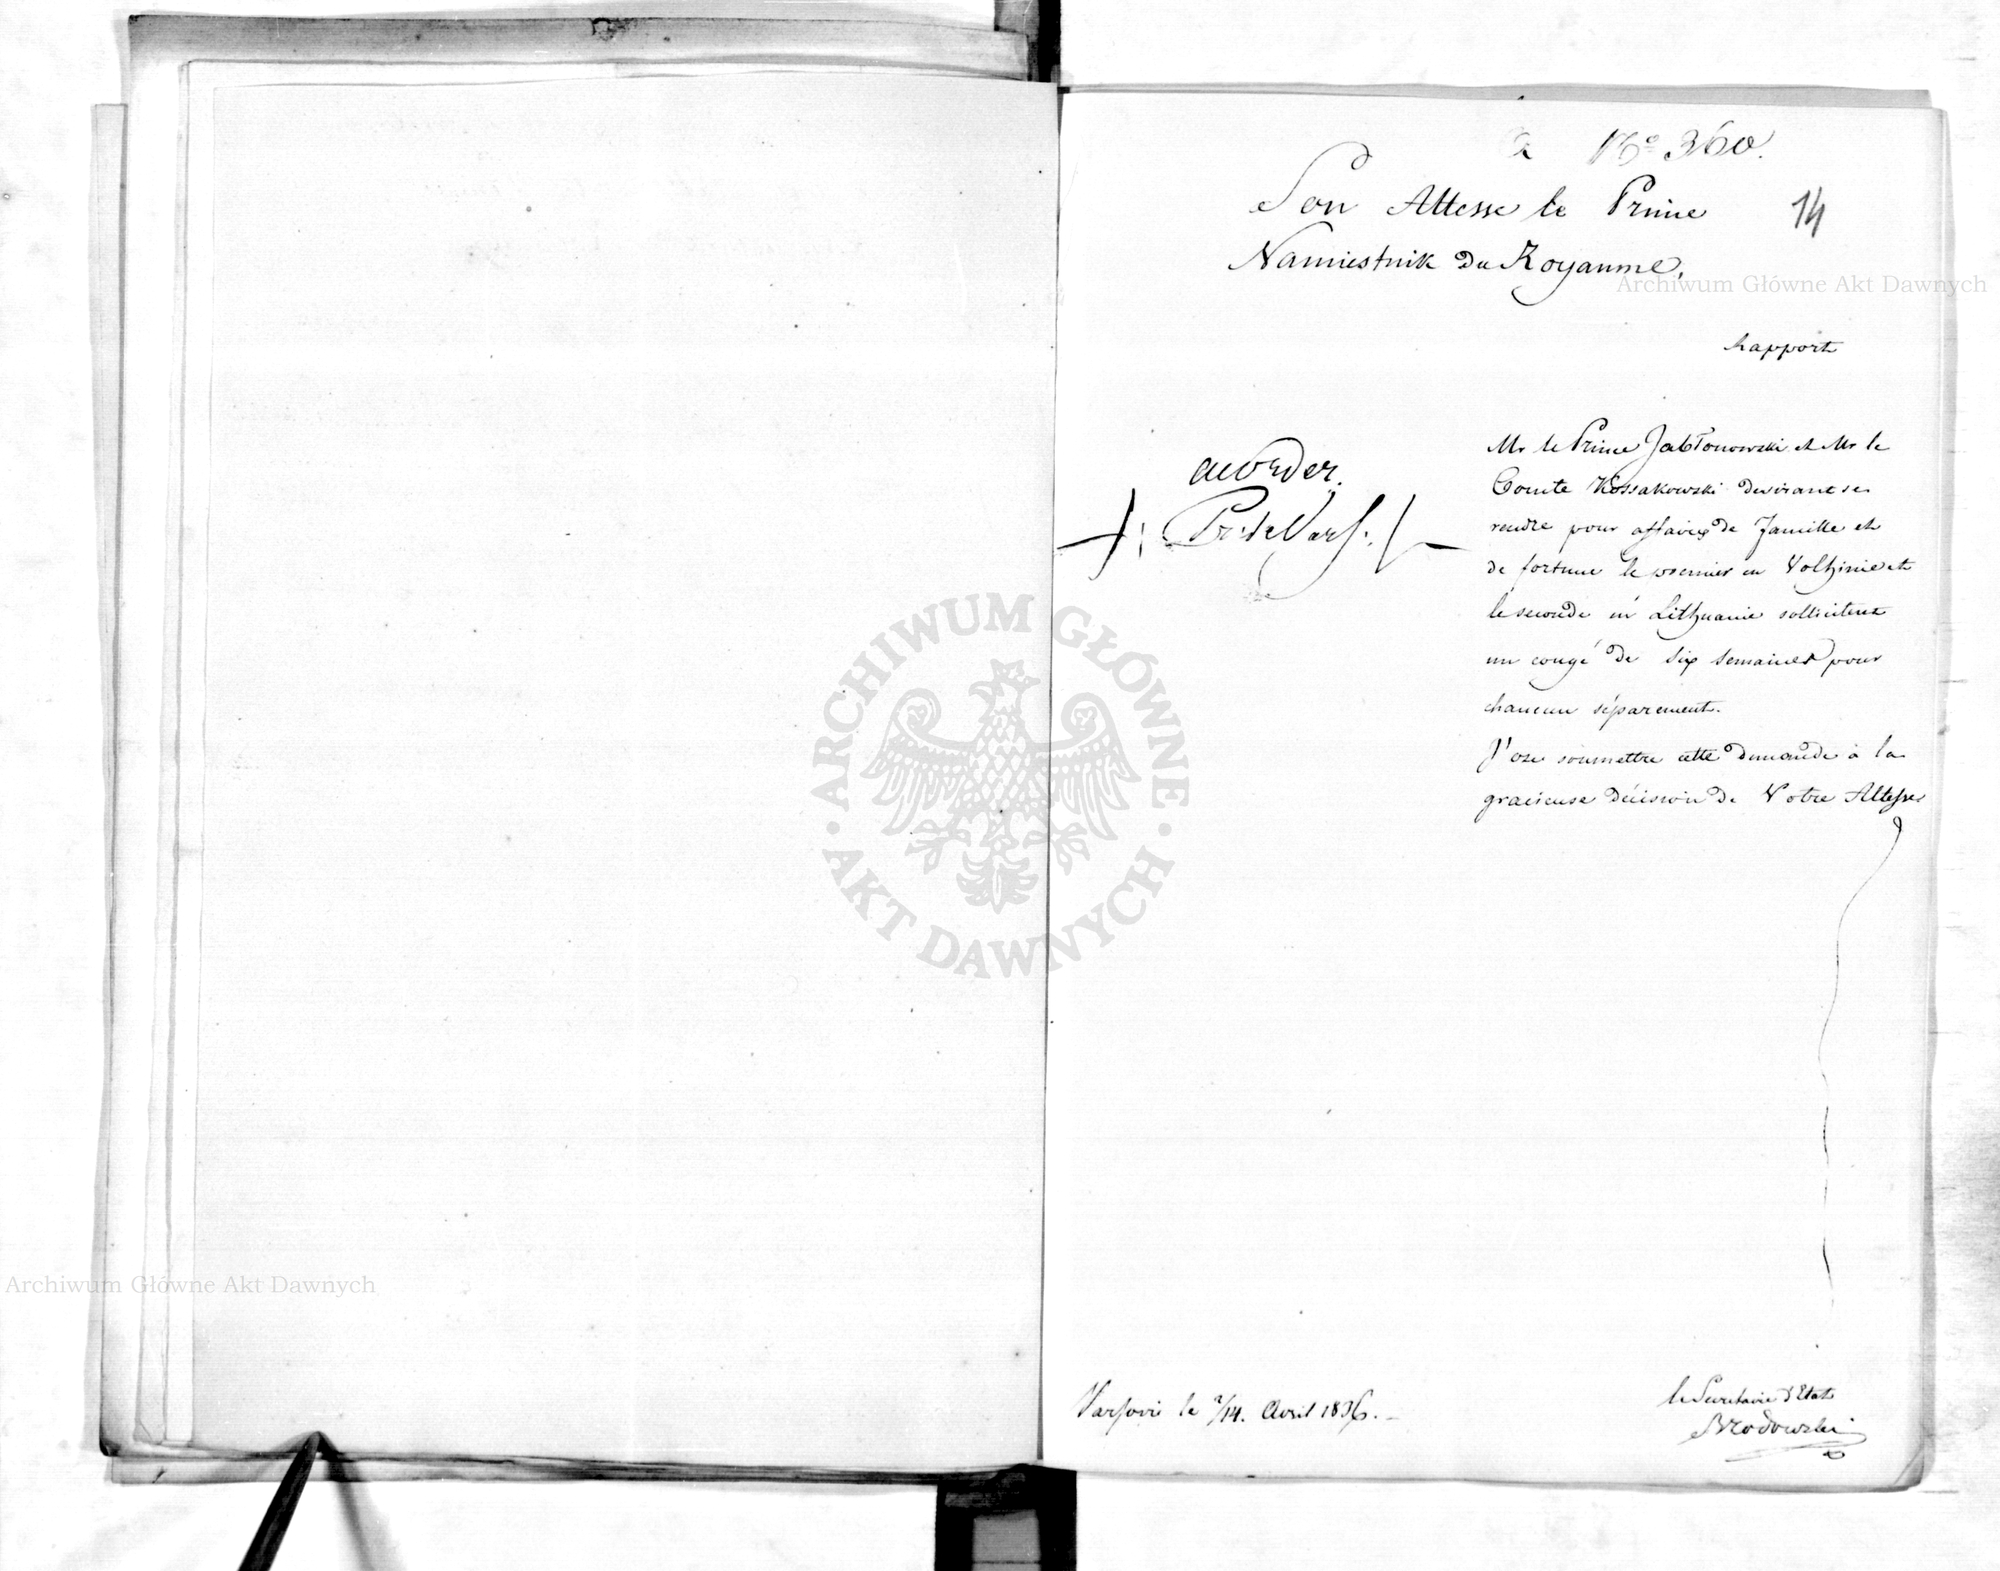 à
№ 360.
14
Son Altesse le Prince
Namiestnik du Royaume,
Archiwum Główne Akt Dawnych
Rapport
Mr le Prince Jabłonowski et Mr le
Comte Kossakowski desirant se
rendre pour affaires de famille et
de fortune le premier en Volhinie et
le seconde en Lithuanie sollicitent
un congé de six semaines pour
chancun séparement.
J'ose soumettre cette demande à la
gracieuse décision de Votre Altesse
accorder.
Pr: de Vars:
ARCHIWUM GŁÓWNE
AKT DAWNYCH
Archiwum Główne Akt Dawnych
Varsovie le 2/14. Avril 1836. –
le Secretaire d'Etat
Brodowski